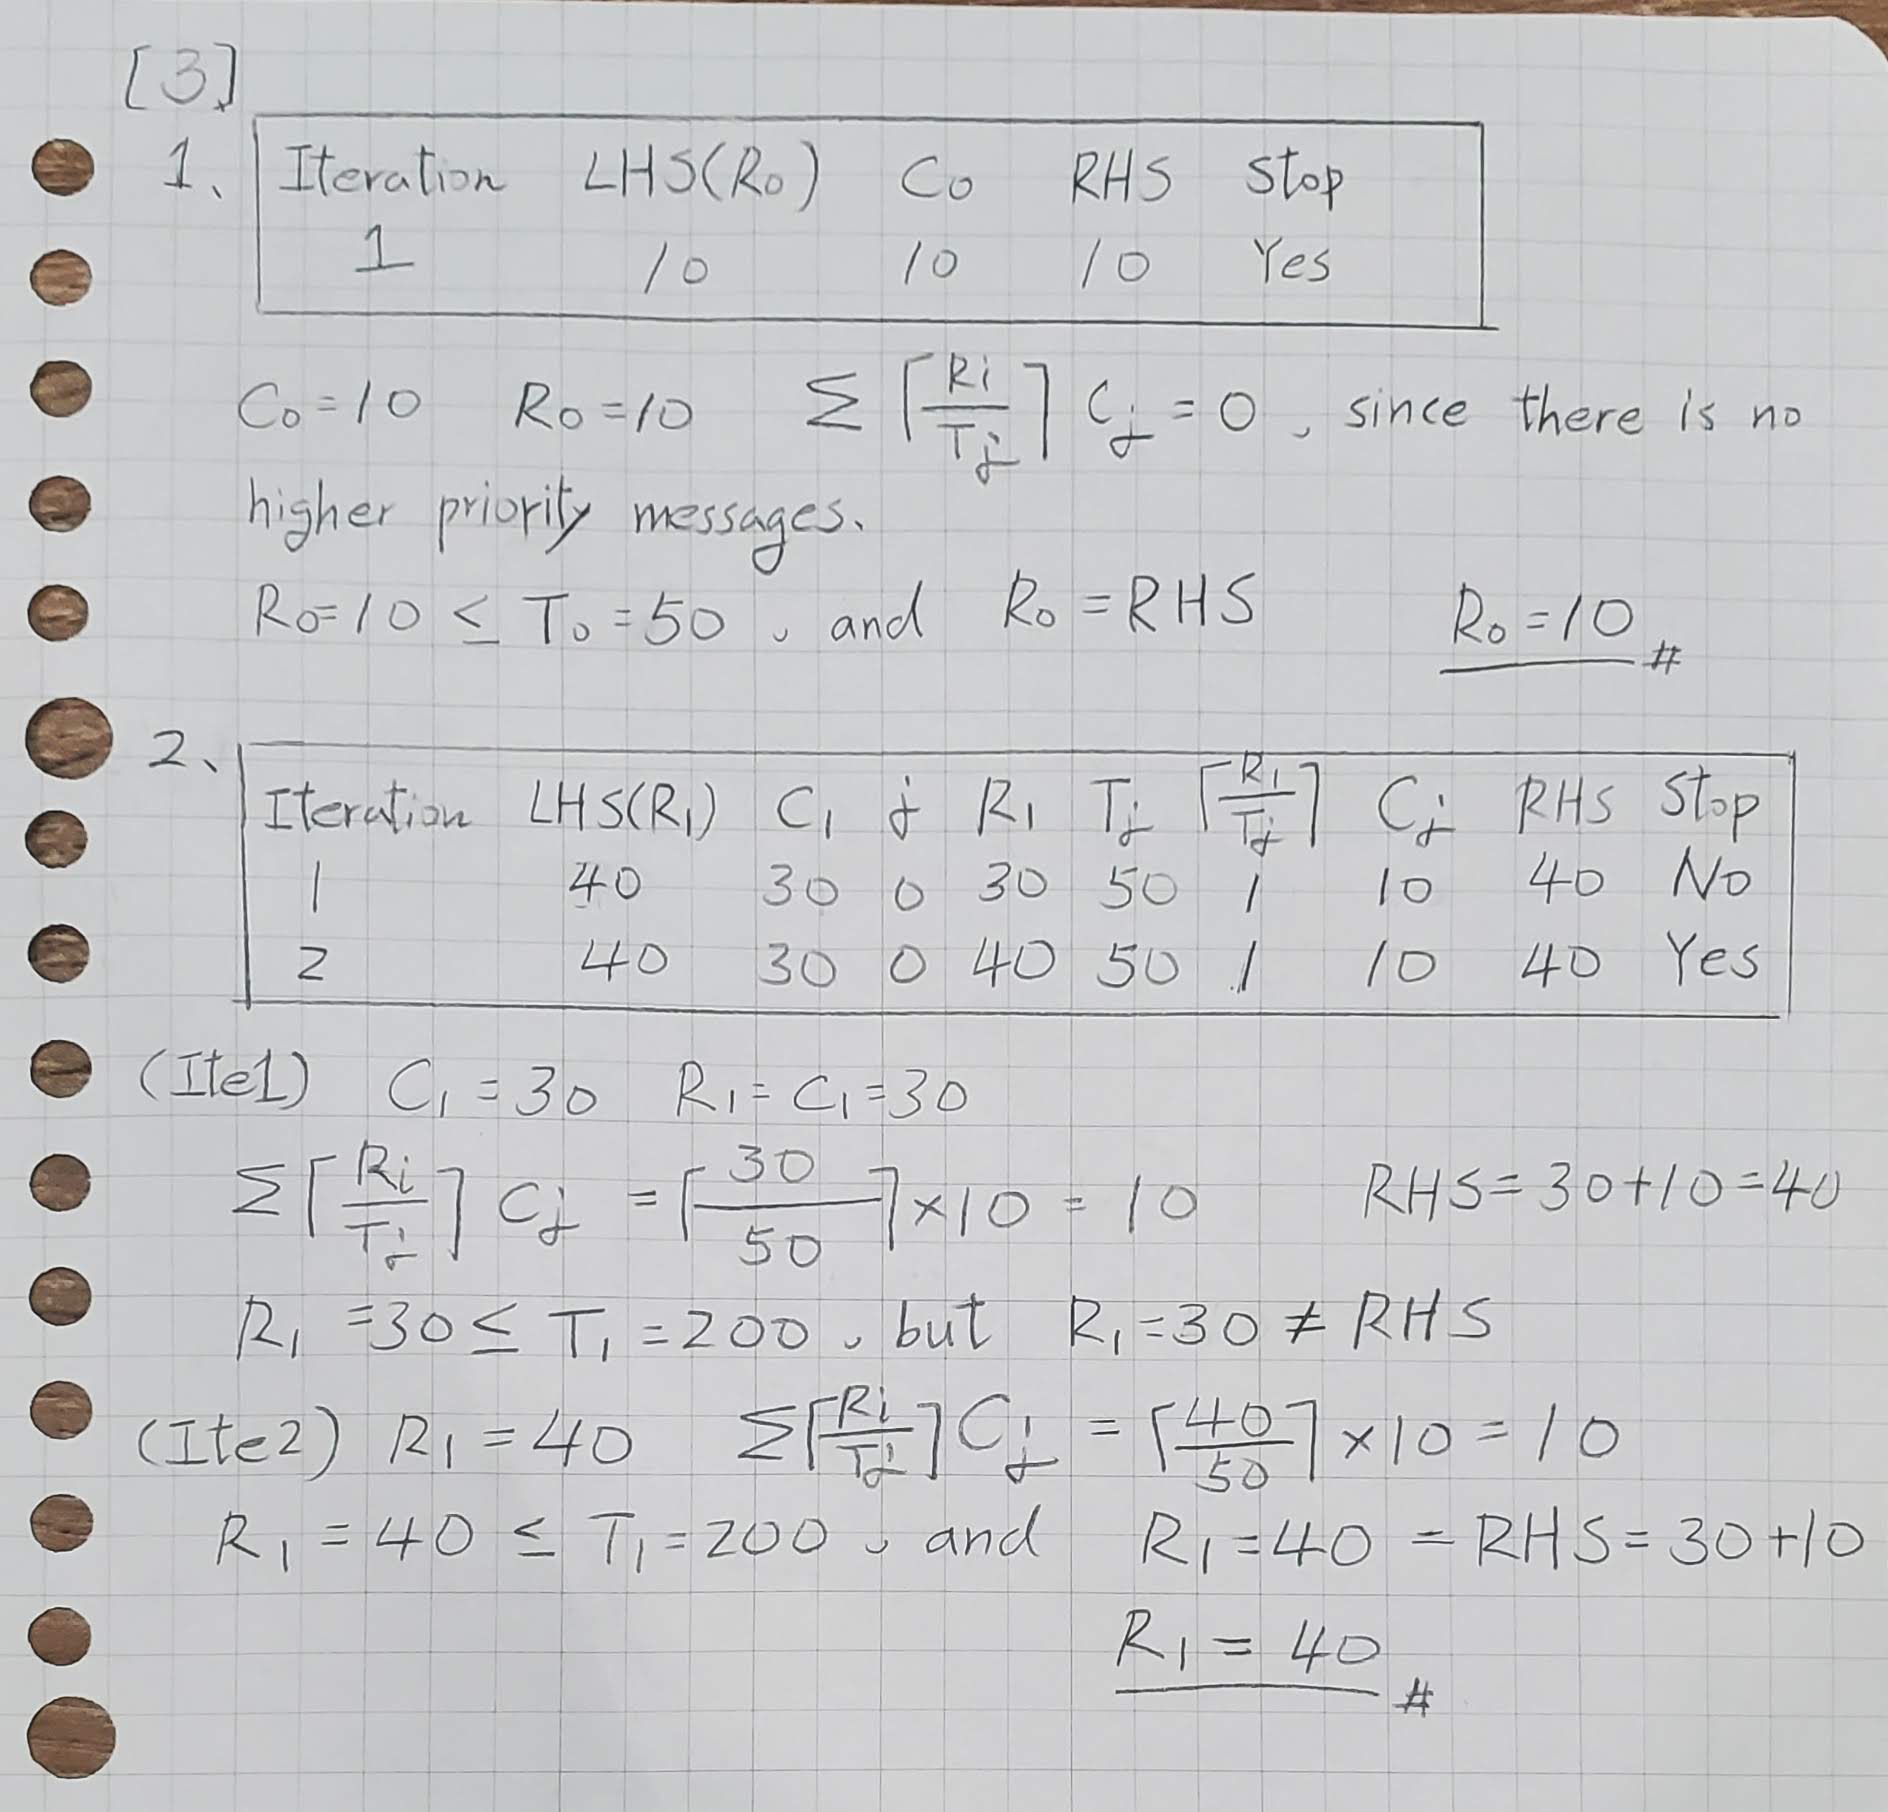 [3]
1、 Iteration LHS(R₀) C₀ RHS Stop
1 10 10 10 Yes
C₀=10 R₀=10 Σ⌈Ri/Tj⌉Cj=0, since there is no
higher priority messages.
R₀=10 ≤ T₀=50, and R₀=RHS R₀=10 #
2、 Iteration LHS(R₁) C₁ j R₁ Tj ⌈R₁/Tj⌉ Cj RHS Stop
1 40 30 0 30 50 1 10 40 No
2 40 30 0 40 50 1 10 40 Yes
(Ite1) C₁=30 R₁=C₁=30
Σ⌈Ri/Tj⌉Cj=⌈30/50⌉×10=10 RHS=30+10=40
R₁=30≤T₁=200, but R₁=30≠RHS
(Ite2) R₁=40 Σ⌈Ri/Tj⌉Cj=⌈40/50⌉×10=10
R₁=40≤T₁=200, and R₁=40=RHS=30+10
R₁=40 #